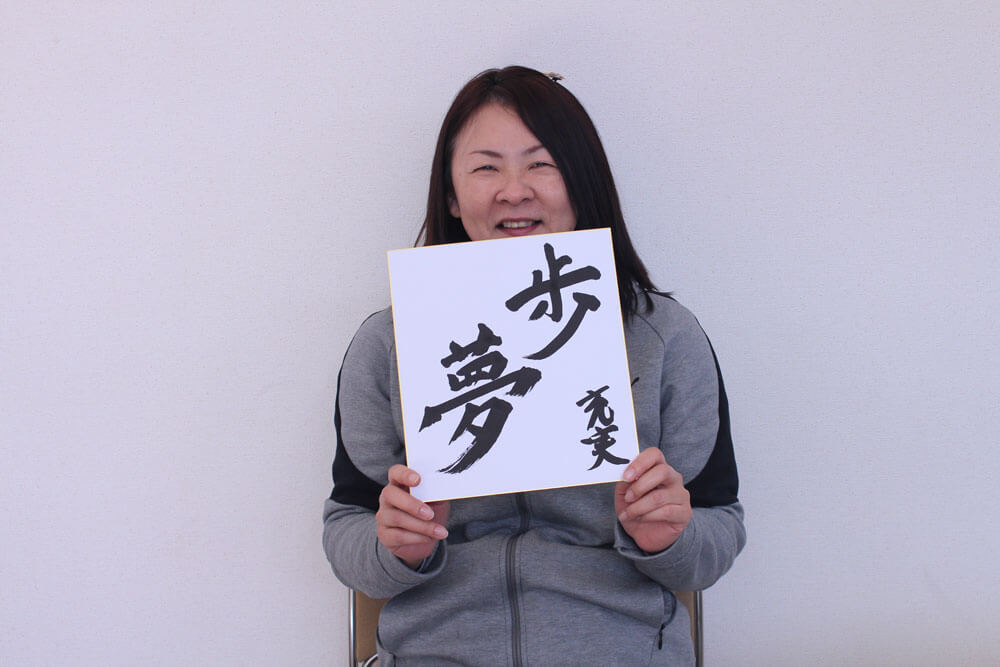 歩
夢
充実